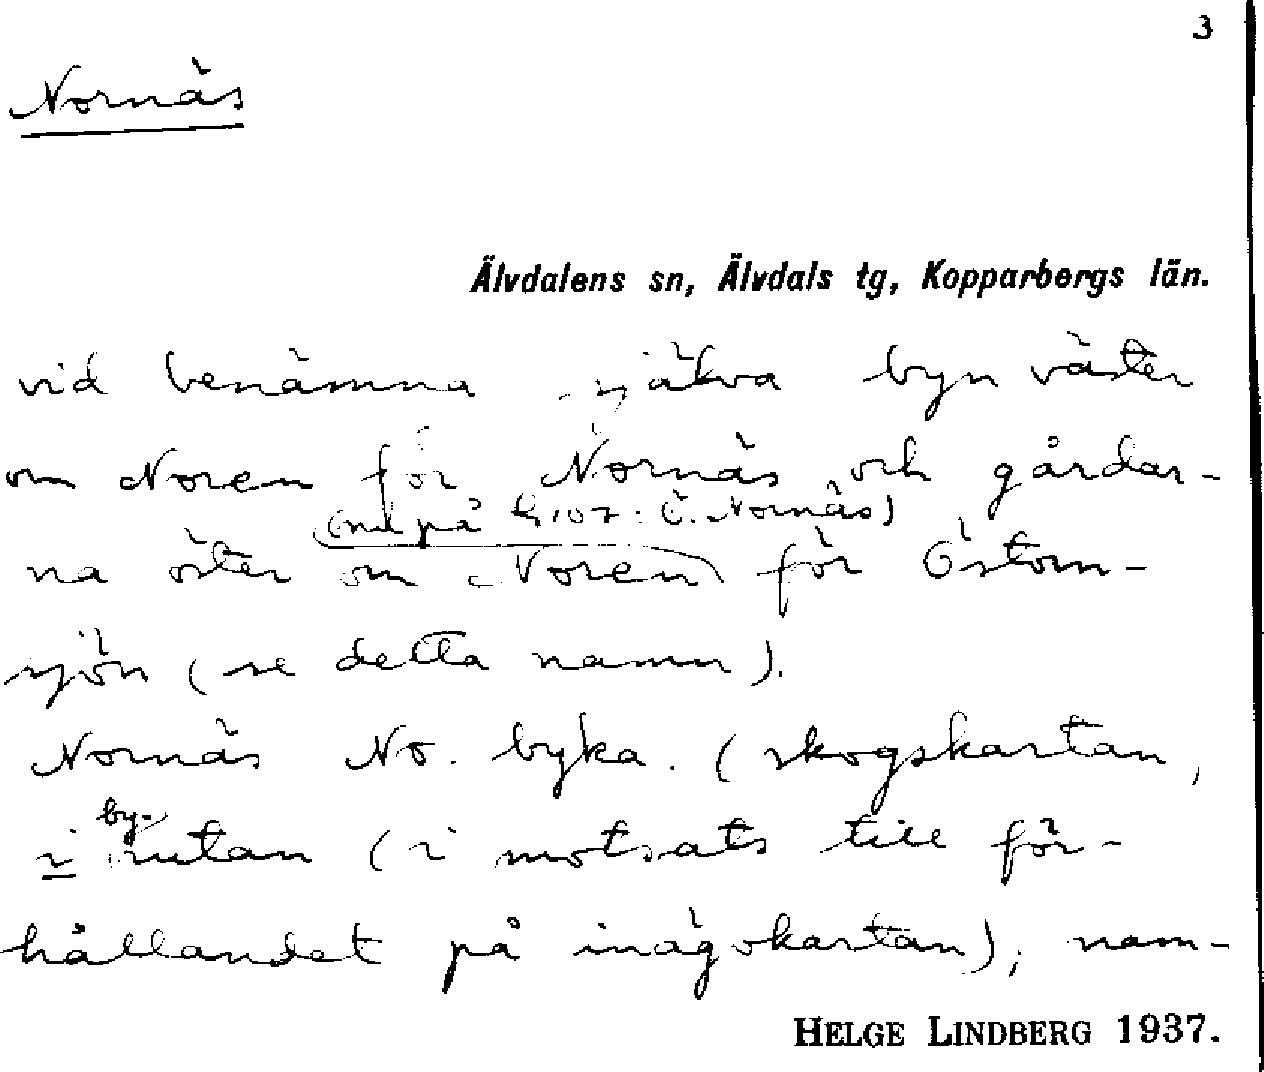 3
Nornäs
Älvdalens sn, Älvdals tg, Kopparbergs län.
vid benämna själva byn väster
om Noren för Nornäs och gårdar-
(nu på G.107: Ö. Nornäs)
na öster om Noren för Östom-
sjön (se detta namn).
Nornäs No. byka. (skogskartan,
by-
i rutan (i motsats till för-
hållandet på inägokartan); nam-
HELGE LINDBERG 1937.